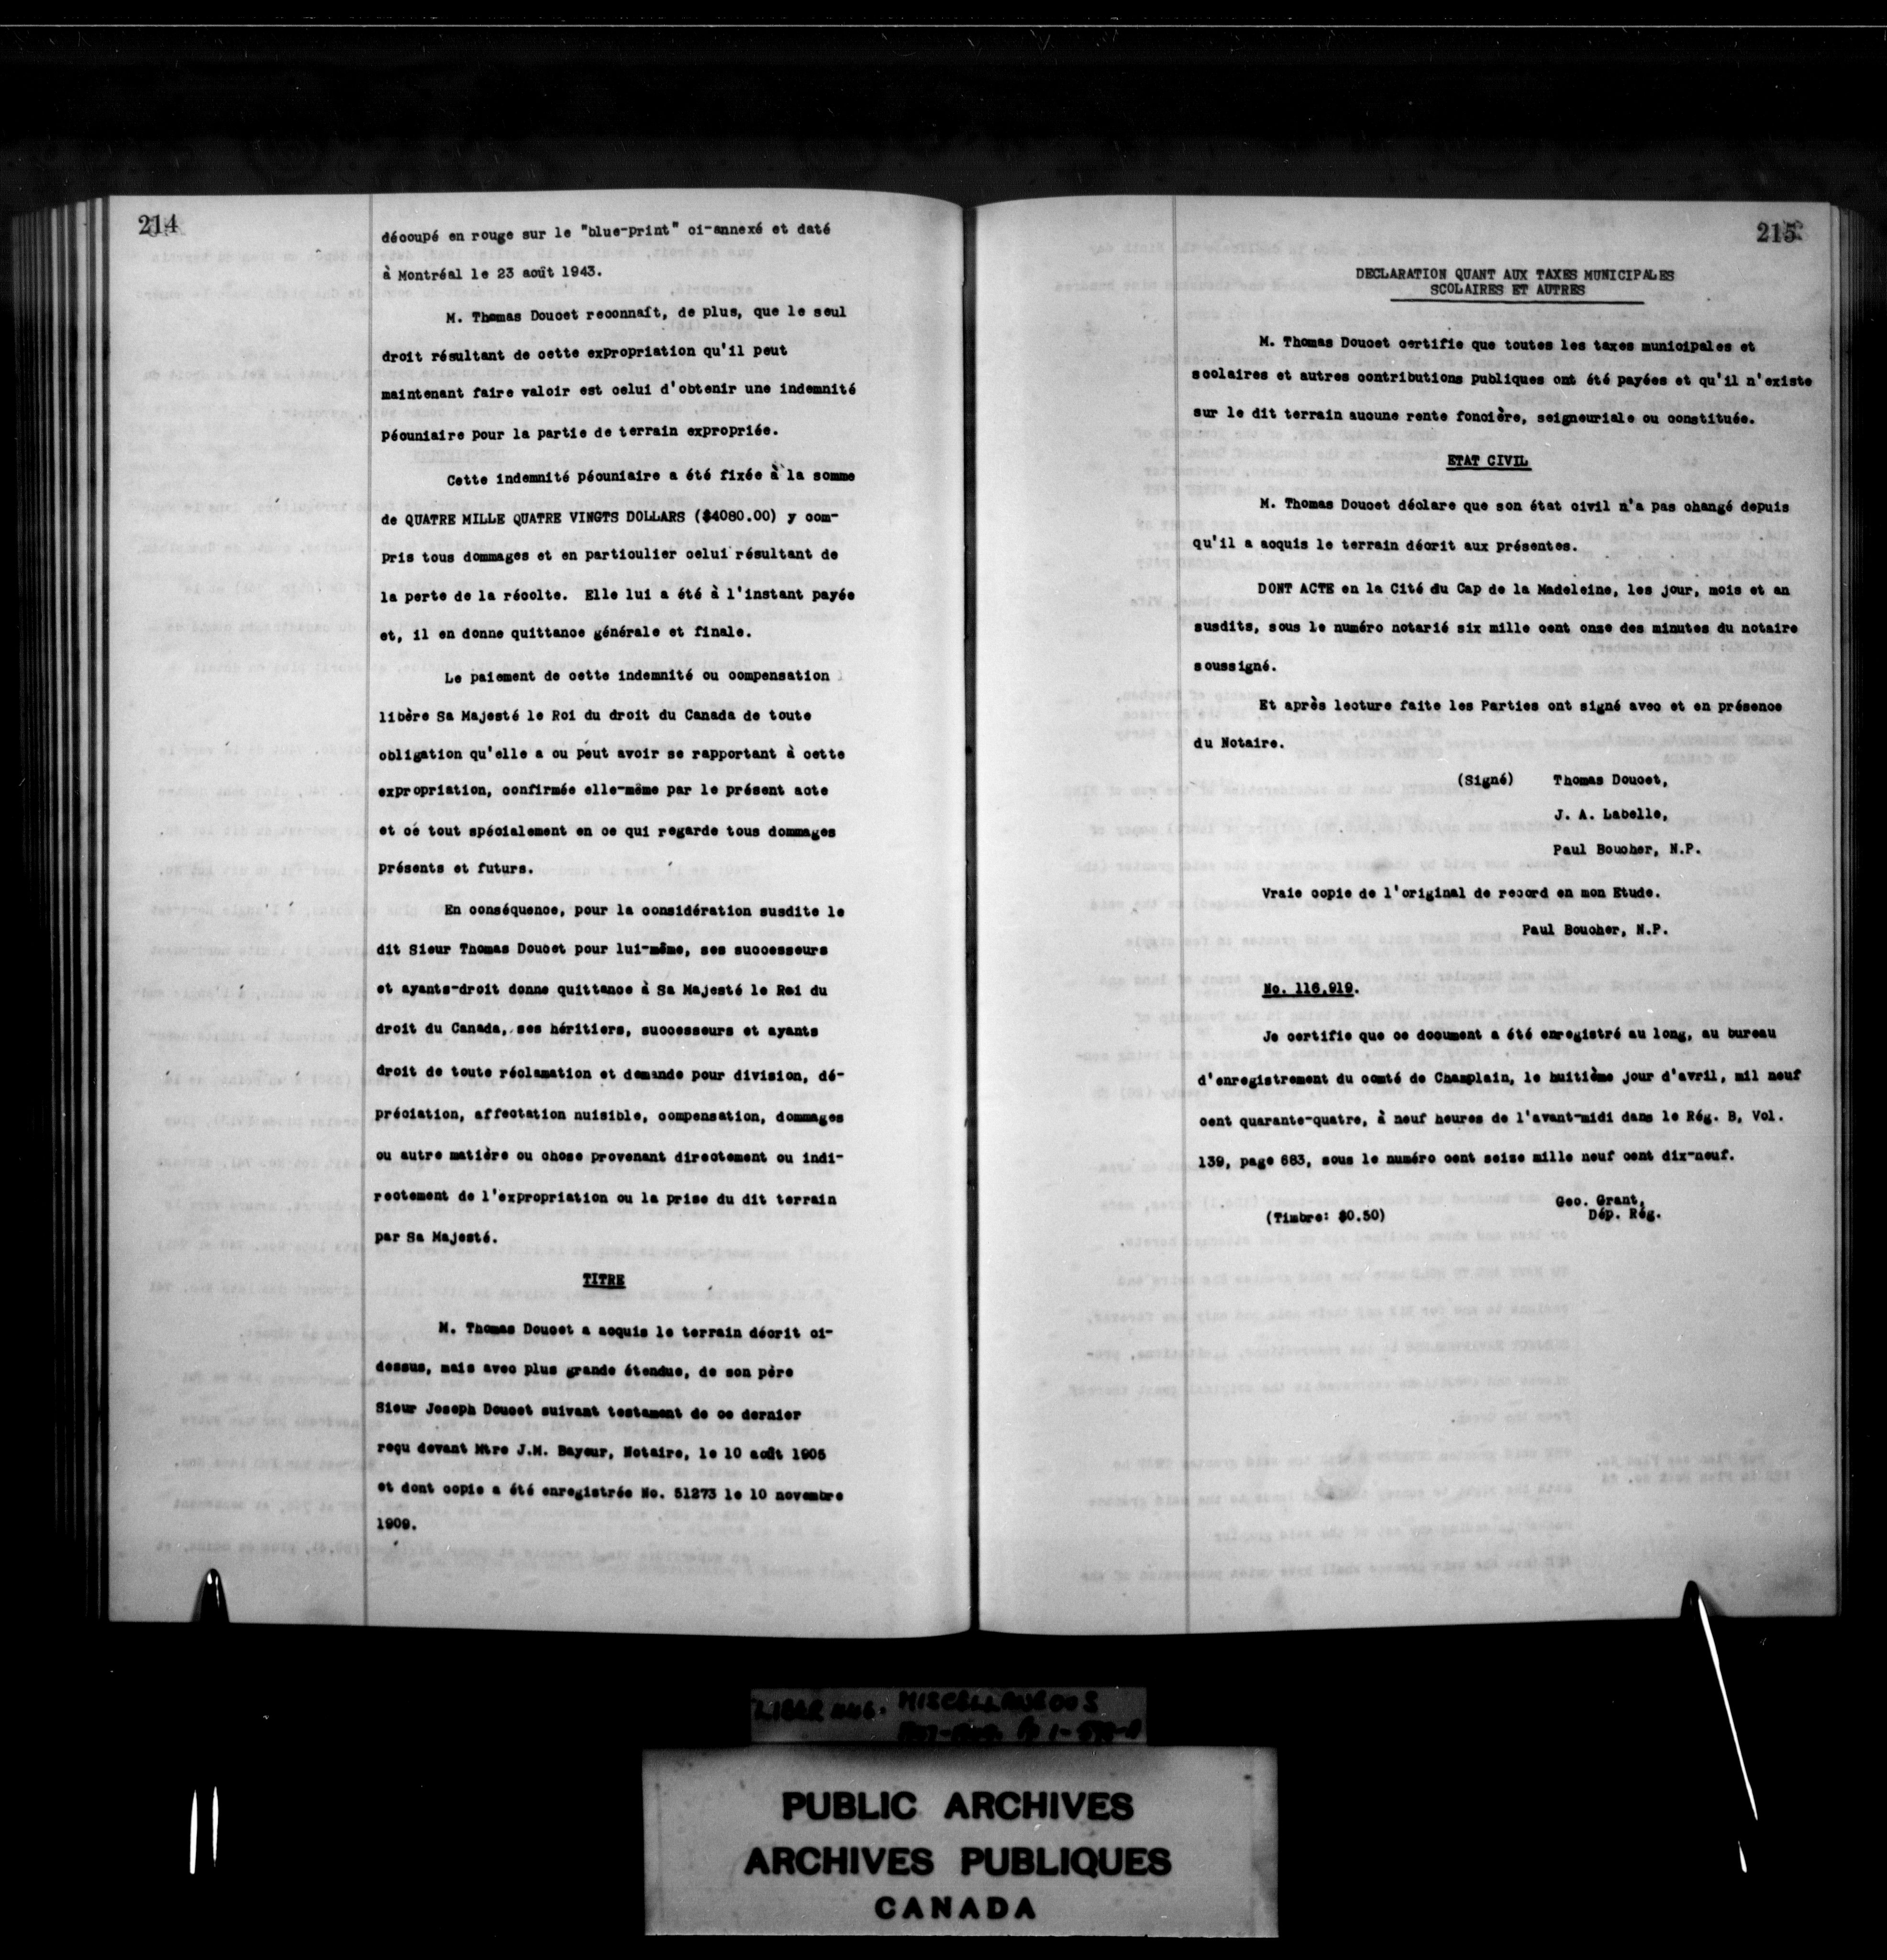 214
découpé en rouge sur le "blue-print" ci-annexé et daté
à Montréal le 23 août 1943.
M. Thomas Doucet reconnaît, de plus, que le seul
droit résultant de cette expropriation qu'il peut
maintenant faire valoir est celui d'obtenir une indemnité
pécuniaire pour la partie de terrain expropriée.
Cette indemnité pécuniaire a été fixée à la somme
de QUATRE MILLE QUATRE VINGTS DOLLARS ($4080.00) y com-
pris tous dommages et en particulier celui résultant de
la perte de la récolte. Elle lui a été à l'instant payée
et, il en donne quittance générale et finale.
Le paiement de cette indemnité ou compensation
libère Sa Majesté le Roi du droit du Canada de toute
obligation qu'elle a ou peut avoir se rapportant à cette
expropriation, confirmée elle-même par le présent acte
et ce tout spécialement en ce qui regarde tous dommages
présents et futurs.
En conséquence, pour la considération susdite le
dit Sieur Thomas Doucet pour lui-même, ses successeurs
et ayants-droit donne quittance à Sa Majesté le Roi du
droit du Canada, ses héritiers, successeurs et ayants
droit de toute réclamation et demande pour division, dé-
préciation, affectation nuisible, compensation, dommages
ou autre matière ou chose provenant directement ou indi-
rectement de l'expropriation ou la prise du dit terrain
par Sa Majesté.
TITRE
M. Thomas Doucet a acquis le terrain décrit ci-
dessus, mais avec plus grande étendue, de son père
Sieur Joseph Doucet suivant testament de ce dernier
reçu devant Mtre J.M. Bayeur, Notaire, le 10 août 1905
et dont copie a été enregistrée No. 51273 le 10 novembre
1909.
215
DECLARATION QUANT AUX TAXES MUNICIPALES
SCOLAIRES ET AUTRES
M. Thomas Doucet certifie que toutes les taxes municipales et
scolaires et autres contributions publiques ont été payées et qu'il n'existe
sur le dit terrain aucune rente foncière, seigneuriale ou constituée.
ETAT CIVIL
M. Thomas Doucet déclare que son état civil n'a pas changé depuis
qu'il a acquis le terrain décrit aux présentes.
DONT ACTE en la Cité du Cap de la Madeleine, les jour, mois et an
susdits, sous le numéro notarié six mille cent onze des minutes du notaire
soussigné.
Et après lecture faite les Parties ont signé avec et en présence
du Notaire.
(Signé) Thomas Doucet,
J. A. Labelle,
Paul Boucher, N.P.
Vraie copie de l'original de record en mon Etude.
Paul Boucher, N.P.
No. 116,919.
Je certifie que ce document a été enregistré au long, au bureau
d'enregistrement du comté de Champlain, le huitième jour d'avril, mil neuf
cent quarante-quatre, à neuf heures de l'avant-midi dans le Rég. B, Vol.
139, page 683, sous le numéro cent seize mille neuf cent dix-neuf.
Geo. Grant,
(Timbre: $0.50) Dép. Rég.
LIBER MISCELLANEOUS
PUBLIC ARCHIVES
ARCHIVES PUBLIQUES
CANADA